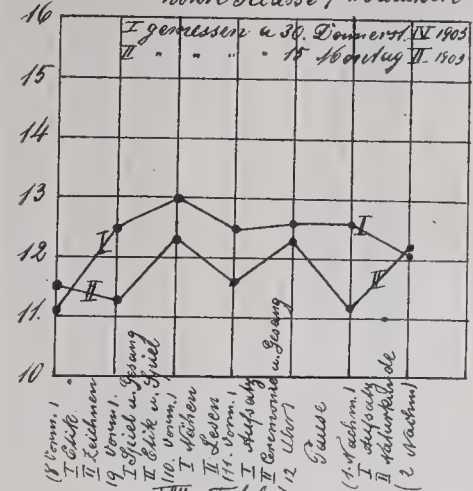 I gemessen a 30. Donnerst. IV 1903
II " " " " 15 Montag II 1903
16
15
14
13
12
11.
10
I
II
I
II
(8 Vorm.)
I Etik
II Zeichnen
(9 Vorm.)
I Spiel u. Gesang
II Etik u. Spiel
(10 Vorm.)
I Nähen
II Lesen
(11. Vorm.)
I Aufsatz
II Ceremonie u. Gesang
12 Uhr)
Pause
(1. Nachm.)
I Aufsatz
II Naturkunde
(2 Nachm)